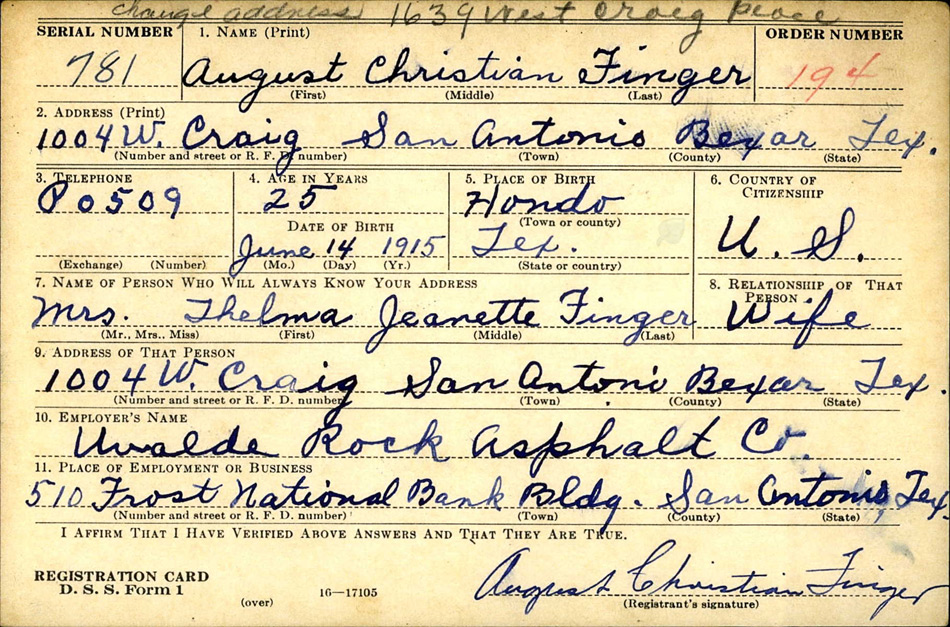 change address 1639 West Craig Place
SERIAL NUMBER 1. NAME (Print) ORDER NUMBER
781 August Christian Finger 194
(First) (Middle) (Last)
2. ADDRESS (Print)
1004 W. Craig San Antonio Bexar Tex.
(Number and street or R. F. D. number) (Town) (County) (State)
3. TELEPHONE 4. AGE IN YEARS 5. PLACE OF BIRTH 6. COUNTRY OF
CITIZENSHIP
P 0509 25 Hondo
(Town or county)
DATE OF BIRTH
June 14 1915 Tex. U. S.
(Exchange) (Number) (Mo.) (Day) (Yr.) (State or country)
7. NAME OF PERSON WHO WILL ALWAYS KNOW YOUR ADDRESS 8. RELATIONSHIP OF THAT
PERSON
Mrs. Thelma Jeanette Finger Wife
(Mr., Mrs.. Miss) (First) (Middle) (Last)
9. ADDRESS OF THAT PERSON
1004 W. Craig San Antoni Bexar Tex.
(Number and street or R. F. D. number) (Town) (County) (State)
10. EMPLOYER'S NAME
Uvalde Rock Asphalt Co.
11. PLACE OF EMPLOYMENT OR BUSINESS
510 Frost National Bank Bldg. San Antonio, Tex.
(Number and street or R. F. D. number) (Town) (County) (State)
I AFFIRM THAT I HAVE VERIFIED ABOVE ANSWERS AND THAT THEY ARE TRUE.
REGISTRATION CARD
D. S. S. Form 1
(over) 16—17105
August Christian Finger
(Registrant's signature)